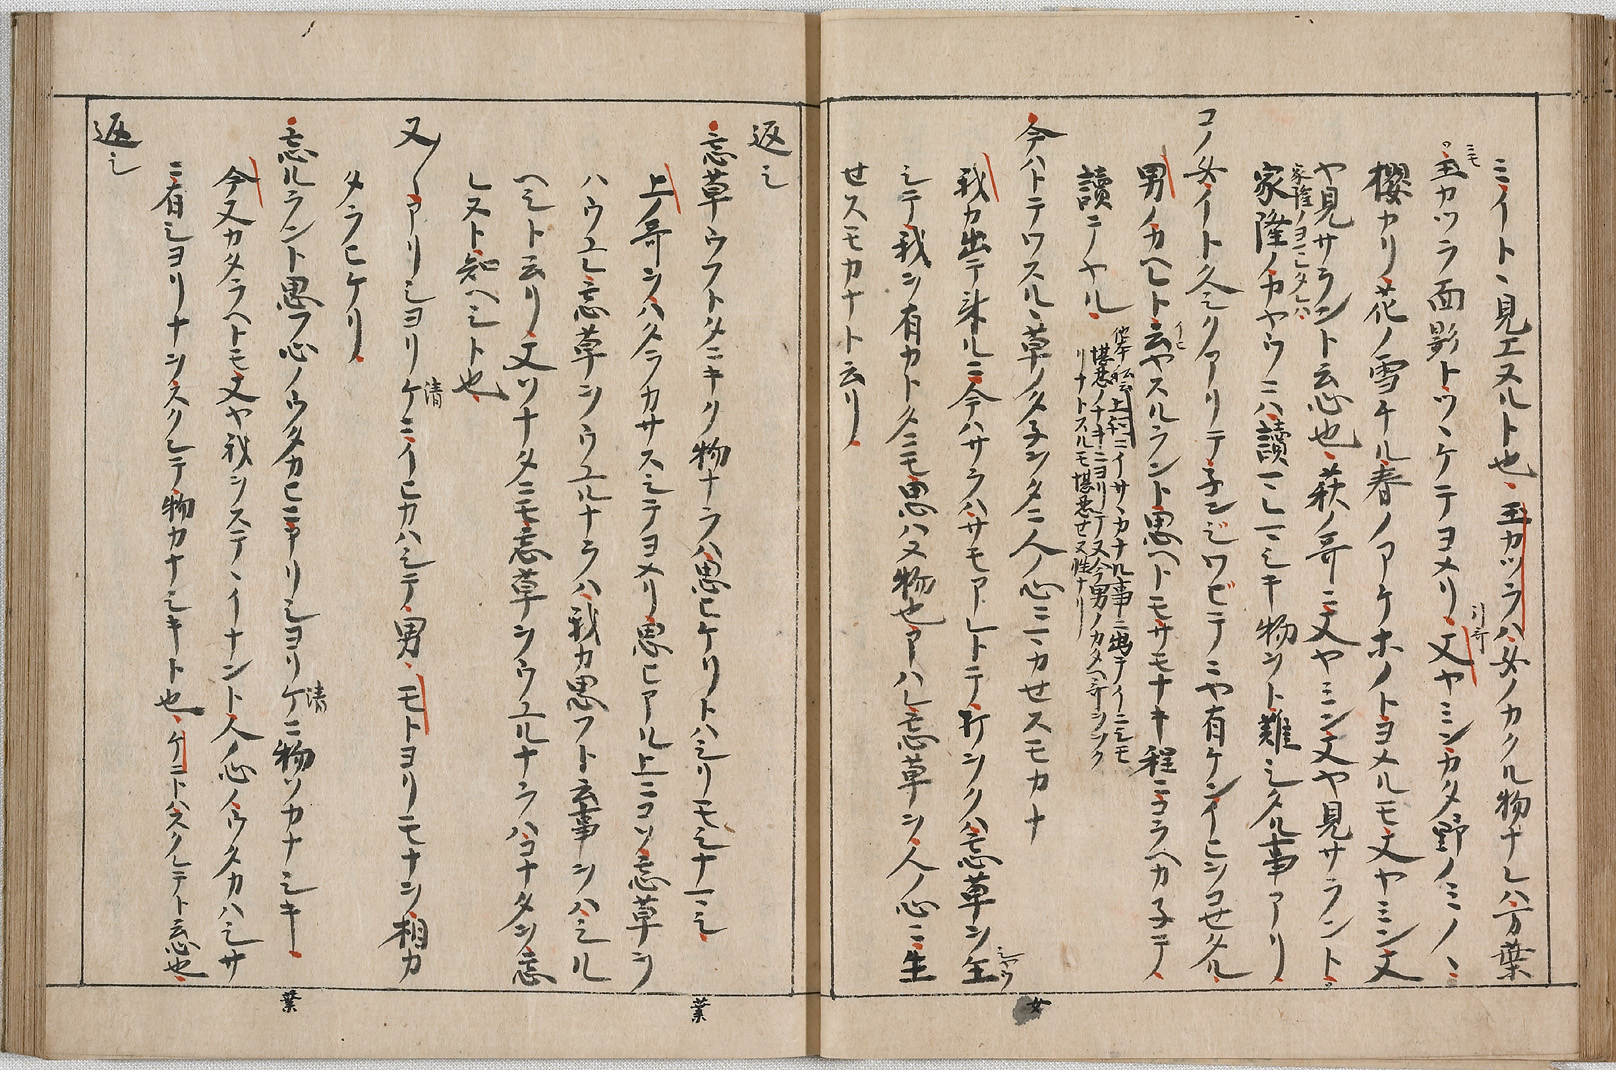 ミイトヽ見エヌルト也玉カツラハ女ノカクル物ナレハ万葉
ニモ玉カツラ面影トツヽケテヨメリ又ヤミンカタ野ノミノヽ
引哥
櫻カリ花ノ雪チル春ノアケホノトヨメルモ又ヤミン又
ヤ見サラント云心也萩ノ哥ニ又ヤミン又ヤ見サラント
家隆ノヨミタレハ
家隆ノカヤウニハ讀マレマシキ物ヲト難シタル事アリ
コノ女イト久シクアリテ子ンジワビテニヤ有ケンイヒヲコセタル
男ノカヘト云ヤスルラント思ヘトモサモナキ程ニコラヘカ子テ
讀テヤル
私云上ノ詞ニイサヽカナル事ニ出テイニシモ
堪忍ノナキニヨリテ又今男ノカタヘ哥ヲツク
リナトスルモ堪忍セヌ性ナリ
今ハトテワスルヽ草ノタ子ヲタニ人ノ心ニマカセスモカナ
我カ出テ来ルニ今ハサラハサモアレトテ行ヲクハ忘草ヲ生
シヤウ
シテ我ヲ有カト久ニモ思ハヌ物也アハレ忘草ヲ人ノ心ニ生
セスモカナト云リ
女
返シ
忘草ウフトタニキク物ナラハ思ヒケリトハシリモシナマシ
上ノ哥ヲハハタラカサスシテヨメリ思ヒアル上ニコソ忘草ヲ
ハウユレ忘草ヲウユルナラハ我カ思フト云事ヲハシル
ヘシト云リ又ソナタニモ忘草ヲウユルナラハコナタヲ忘
レスト知ヘシト也
又〱アリシヨリケニイヒカハシテ男モトヨリモナシ相カ
清
タラヒケリ
忘ルラント思フ心ノウタカヒニアリシヨリケニ物ソカナシキ
清
今又カタラヘトモ又ヤ我ヲステヽイナント人ノ心ノウタカハシサ
ニ有シヨリナヲスクレテ物カナシキト也ケニトハスクレテト云心也
返シ
葉
葉